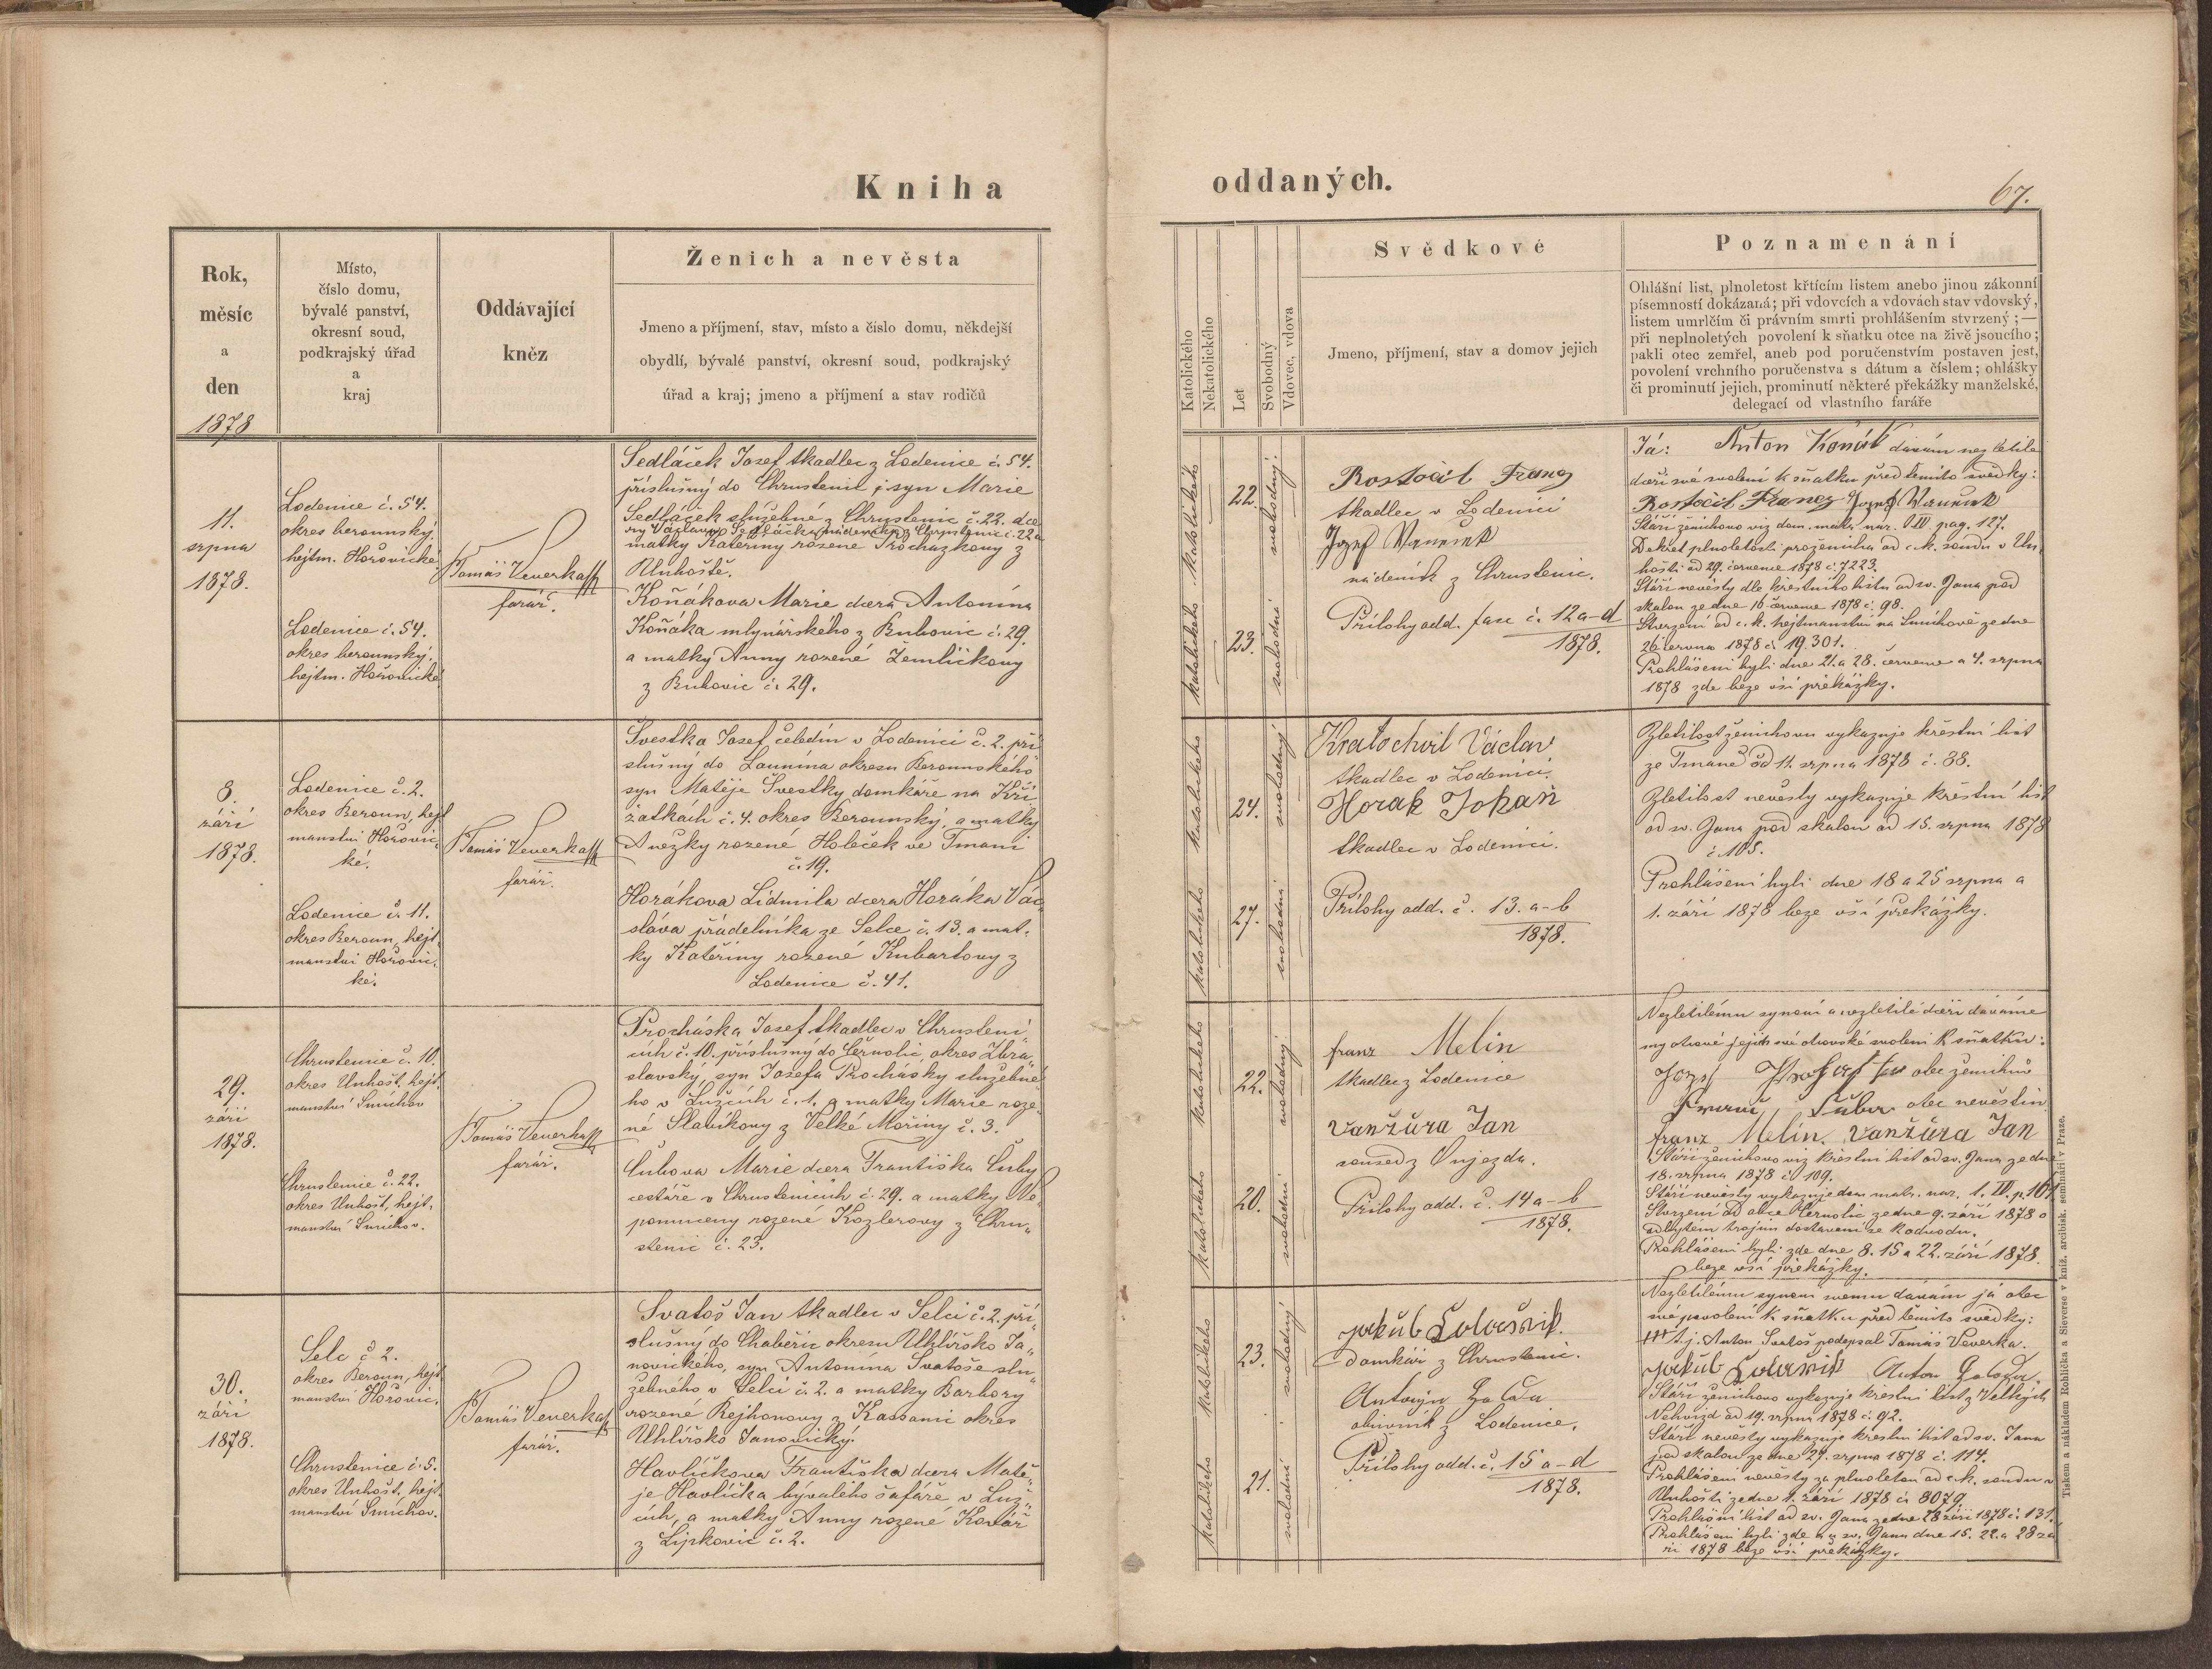 Kniha
oddaných.
67.
Rok,
měsíc
a
den
1878
Místo,
číslo domu,
bývalé panství,
okresní soud,
podkrajský úřad
a
kraj
Oddávající
kněz
Ženich a nevěsta
Jmeno a příjmení, stav, místo a čislo domu, někdejší
obydlí, bývalé panství, okresní soud, podkrajský
úřad a kraj; jmeno a příjmení a stav rodičů
Katolického
Nekatolického
Let
Svobodný
Vdovec, vdova
Svědkové
Jmeno, příjmení, stav a domov jejich
Poznamenání
Ohlášní list, plnoletost křtícím listem anebo jinou zákonní
písemností dokázaná; při vdovcích a vdovách stav vdovský,
listem umrlčím či právním smrti prohlášením stvrzený; —
při neplnoletých povolení k sňatku otce na živě jsoucího;
pakli otec zemřel, aneb pod poručenstvím postaven jest,
povolení vrchního poručenstva s dátum a číslem; ohlášky
či prominutí jejich, prominutí některé překážky manželské,
delegací od vlastního faráře
11.
srpna
1878.
Lodenice č. 54.
okres berounský,
hejtm. Hořovické
Lodenice č. 54.
okres berounský,
hejtm. Hořovické
Tomáš Veverka
farář.
Sedláček Josef tkadlec z Lodenice č. 54.
příslušný do Chrustenic, syn Marie
Sedláček služebné z Chrustenic č. 22. dce
ry Václava Sedláčka nádeníka z Chrustenic č. 22 a
matky Kateřiny rozené Procházkovy z
Unhoště.
Koňákova Marie dcera Antonína
Koňáka mlynářského z Bubovic č. 29.
a matky Anny rozené Žemličkovy
z Bubovic č. 29.
katolického
katolického
22.
23.
svobodný
svobodná
Rostočil Franz
tkadlec v Lodenici
Jozef Vaněšek
nádeník z Chrustenic.
Přílohy add. fasc č. 12 a-d
1878.
Já: Anton Koňák dávám nezletilé
dceři své svolení k sňatku před těmito svědky:
Rostočil Franz Jozef Vaněšek
Stáří ženichovo viz dom. matr. nar. t III. pag. 127.
Dekret plnoletosti pro ženicha od c. k. soudu v Un
hošti od 29. července 1878 č. 7223.
Stáří nevěsty dle křestního listu od sv. Jana pod
skalou ze dne 16 července 1878 č. 98.
Stvrzení od c. k. hejtmanství na Smíchově ze dne
26 června 1878 č. 19.301.
Prohlášeni byli dne 21. a 28. července a 4. srpna
1878 zde beze vší překážky.
8.
září
1878.
Lodenice č. 2.
okres Beroun, hejt
manství Hořovic,
ké.
Lodenice č. 11.
okres Beroun, hejt,
manství Hořovic,
ké.
Tomáš Veverka
farář.
Švestka Josef čeledín v Lodenici č. 2. pří
slušný do Lounína okresu Berounského
syn Matěje Švestky domkáře na Kři
žatkách č. 4. okres Berounský, a matky
Anežky rozené Holeček ve Tmani
č. 19.
Horákova Lidmila dcera Horáka Vác,
sláva přádelníka ze Selce č. 13. a mat,
ky Kateřiny rozené Kubartovy z
Lodenice č. 41.
katolického
katolického
24.
27.
svobodný
svobodná
Kratochvil Václav
tkadlec v Lodenici.
Horak Johan
tkadlec v Lodenici.
Přílohy add. č. 13. a-b
1878.
Zletilost ženichovu vykazuje křestní list
ze Tmaně od 12. srpna 1878 č. 38.
Zletilost nevěsty vykazuje křestní list
od sv. Jana pod skalou od 15. srpna 1878
č. 105.
Prohlášeni byli dne 18 a 25 srpna a
1. září 1878 beze vší překážky.
29.
září
1878.
Chrustenice č. 10.
okres Unhošt, hejt,
manství Smíchov
Chrustenice č. 22.
okres Unhošt, hejt,
manství Smíchov.
Tomáš Veverka
farář.
Procháska Josef tkadlec v Chrusteni
cích č. 10. příslušný do Černolic, okres Zbra,
slavský, syn Josefa Prochásky služebné
ho v Lužcích č. 1. a matky Marie roze,
né Slavíkovy z Velké Mořiny č. 3.
Čubova Marie dcera Františka Čuby
cestáře v Chrustenicích č. 29. a matky Ne,
pomuceny rozené Kozlerovy z Chru,
stenic č. 23.
katolického
katolického
22.
20.
svobodný
svobodná
franz Melin
tkadlec z Lodenice
Vanžůra Jan
soused z Oujezda.
Přílohy add. č. 14 a-b
1878.
Nezletilému synovi a nezletilé dceři dáváme
my otcové jejich své otcovské svolení k sňatku:
otec ženichův
otec nevěstin
franz Melin. Vanžůra Jan
Stáří ženichovo viz křestní list od sv. Jana ze dne
18. srpna 1878 č. 109.
Stáří nevěsty vykazuje dom matr. nar. t. IV. p. 161
Stvrzení od obce Černolic ze dne 9. září 1878 o
odbytém trojím dostavení se k odvodu.
Prohlášeni byli zde dne 8. 15 a 22. září 1878.
beze vší překážky.
30.
září
1878.
Selc č 2.
okres Beroun, hejt
manství Hořovic,
Chrustenice č. 5.
okres Unhošt, hejt,
manství Smíchov.
Tomáš Veverka
farář.
Svatoš Jan tkadlec v Selci č. 2. pří,
slušný do Chaberic okresu Uhlířsko Ja,
novického, syn Antonína Svatoše slu,
žebného v Selci č. 2. a matky Barbory
rozené Rejhonovy z Kassanic okres
Uhlířsko Janovický.
Havlíčkova Františka dcera Matě,
je Havlíčka bývalého šafáře v Luž,
cích, a matky Anny rozené Kovář
z Lipkovic č. 2.
katolického
katolického
23.
21.
svobodný
svobodná
domkář z Chrustenic.
z Lodenice.
Přílohy add. č. 15 a-d
1878.
Nezletilému synovi svému dávám já otec
své povolení k sňatku před těmito svědky:
+++ t. j. Anton Svatoš podepsal Tomáš Veverka.
Stáří ženichovo vykazuje křestní list z Velkých
Nehvizd od 19. srpna 1878 č. 92.
Stáří nevěsty vykazuje křestní list od sv. Jana
pod skalou ze dne 27. srpna 1878 č. 114.
Prohlášení nevěsty za plnoletou od c. k. soudu v
Unhošti ze dne 1. září 1878 č. 8079.
Prohlášní list od sv. Jana ze dne 28 září 1878 č. 131.
Prohlášeni byli zde a u sv. Jana dne 15. 22. a 28 zá
ří 1878 beze vší překážky.
Tiskem a nákladem Rohlíčka a Sieverse v kniž. arcibisk. semináři v Praze.